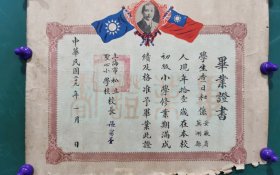 畢業證書
學生日和係安徽省
縣
人現年拾壹歲在本校
初級小學修業期滿成
績及格准予畢業此證
上海市私立
聖心小學校校長
中華民國年一月 日